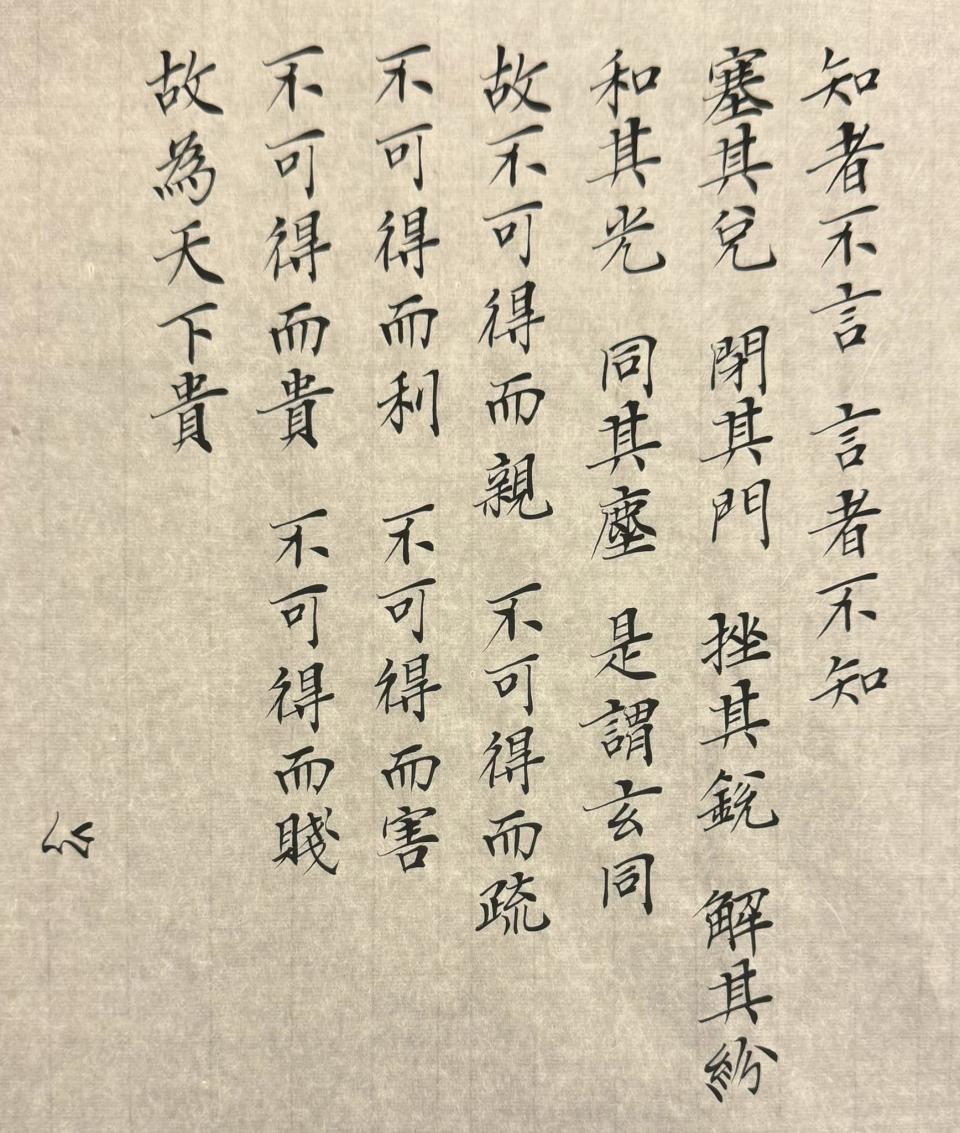 知者不言　言者不知
塞其兌　閉其門　挫其銳　解其紛
和其光　同其塵　是謂玄同
故不可得而親　不可得而疏
不可得而利　不可得而害
不可得而貴　不可得而賤
故為天下貴